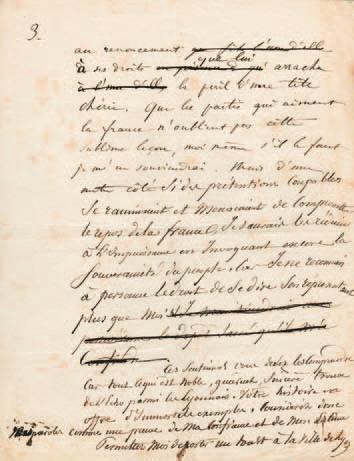 3.
au renoncement
que lui
à ses droits arracha
le péril d'une tête
chérie. Que les partis qui aiment
la france n'oublient pas cette
sublime leçon, moi même s'il le faut
je m'en souviendrai. Mais d'une
autre côté Si des prétentions Coupables
Se ranimaient et Menacaient de Compromettre
le repos de la france, Je Saurais les réduire
à L'Impuissance en Invoquant encore la
Souveraineté du peuple, Car Je ne reconnais
à personne le droit de Se dire Son représentant
plus que Moi
Ces Sentimens
Car tout ce qui est Noble, Sincère trouve
de l'Echo parmi les Lyonnais. Votre histoire en
offre d'Immortels exemples,
comme une preuve de Ma Confiance et de Mon Estime
Permettez Moi de porter un toast à la Ville de Lyon